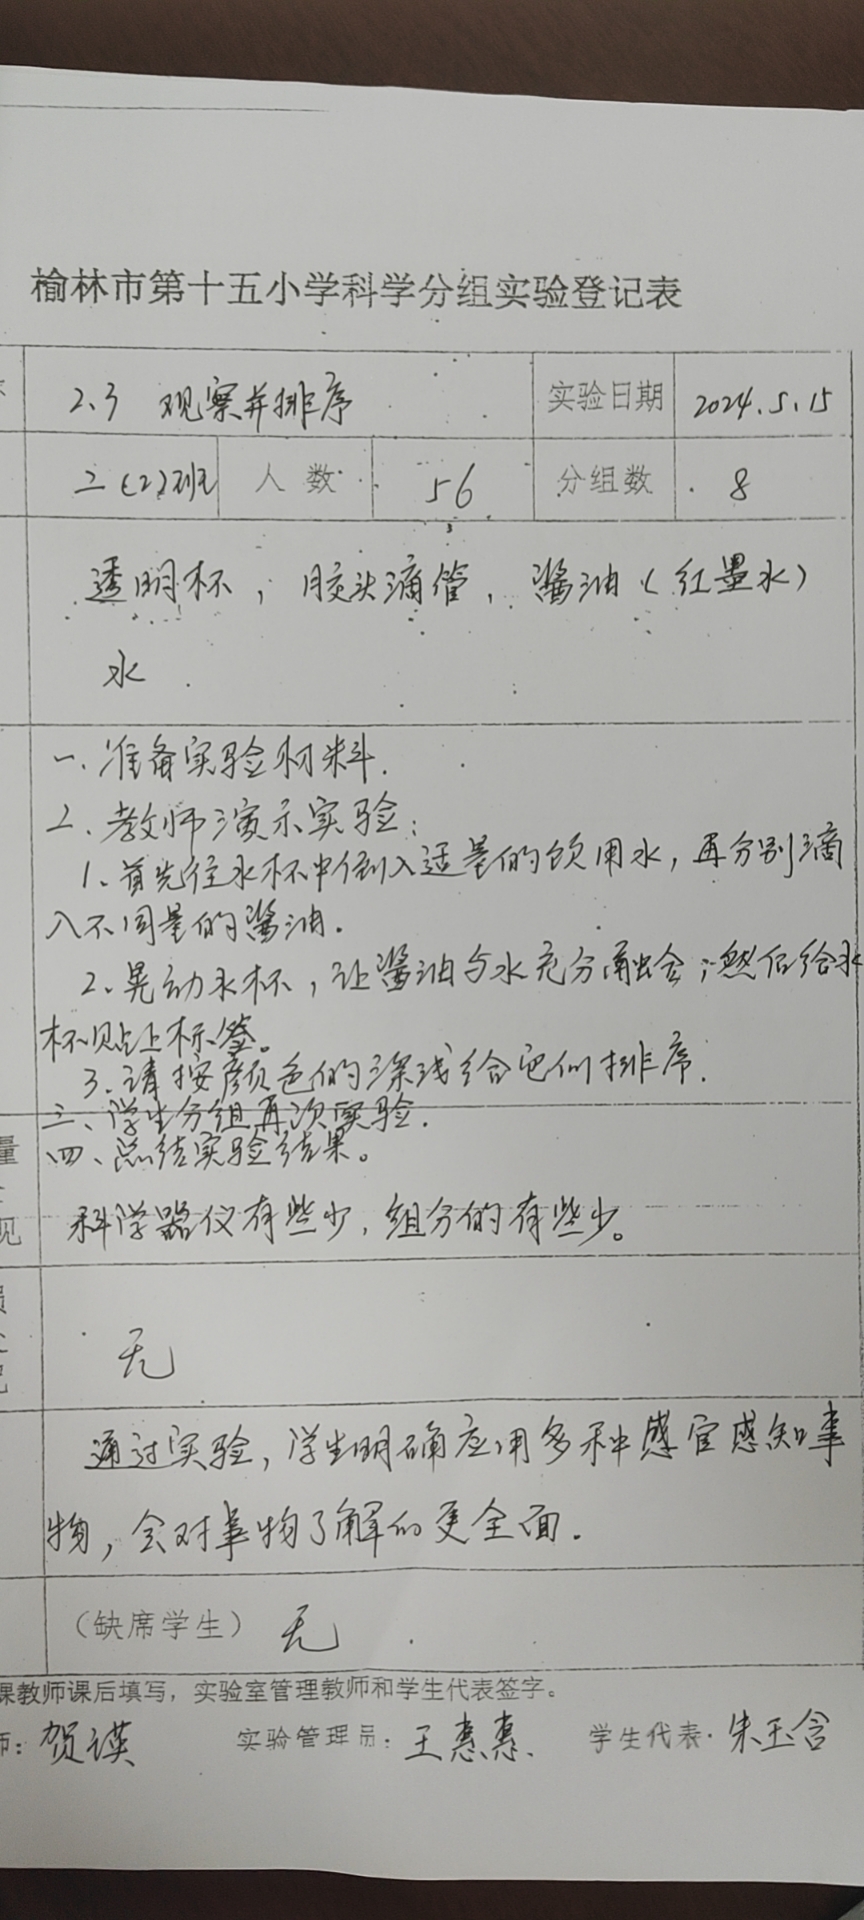 榆林市第十五小学科学分组实验登记表
2.3 观察并排序 实验日期 2024.5.15
二(2)班 人数 56 分组数 8
透明杯，胶头滴管，酱油（红墨水）
水
一、准备实验材料.
二、教师演示实验：
1、首先往水杯中倒入适量的饮用水，再分别滴
入不同量的酱油.
2、晃动水杯，让酱油与水充分融合；然后给水
杯贴上标签。
3、请按颜色的深浅给它们排序.
三、学生分组再次实验.
四、总结实验结果。
量
见 科学器仪有些少，组分的有些少。
无
通过实验，学生明确应用多种感官感知事
物，会对事物了解的更全面.
（缺席学生） 无
课教师课后填写，实验室管理教师和学生代表签字。
师：贺瑛 实验管理员：王惠惠 学生代表：朱玉含